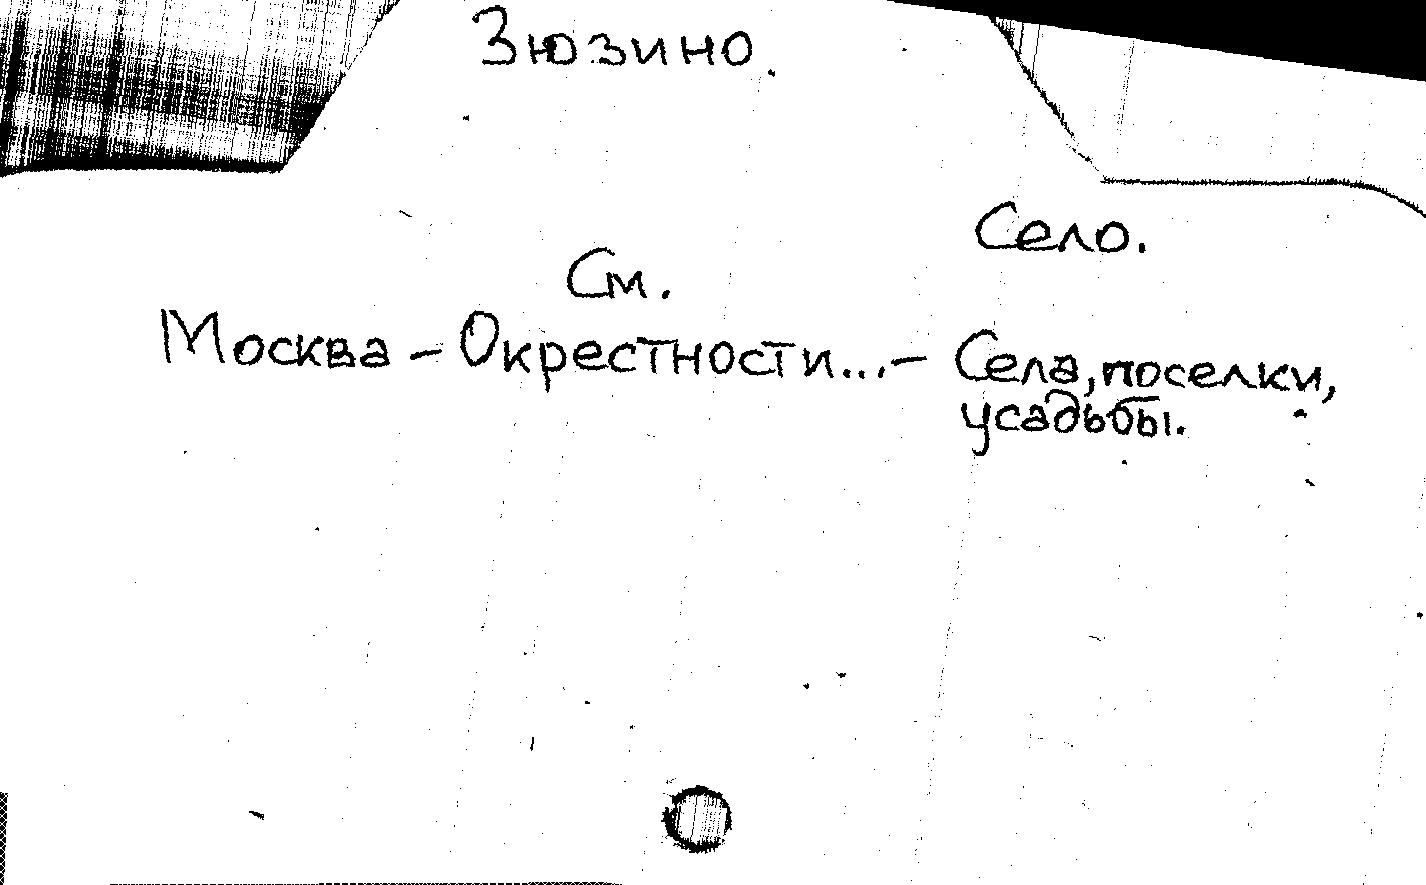 Зюзино.
Село.
См.
Москва – Окрестности... – Села, поселки,
усадьбы.